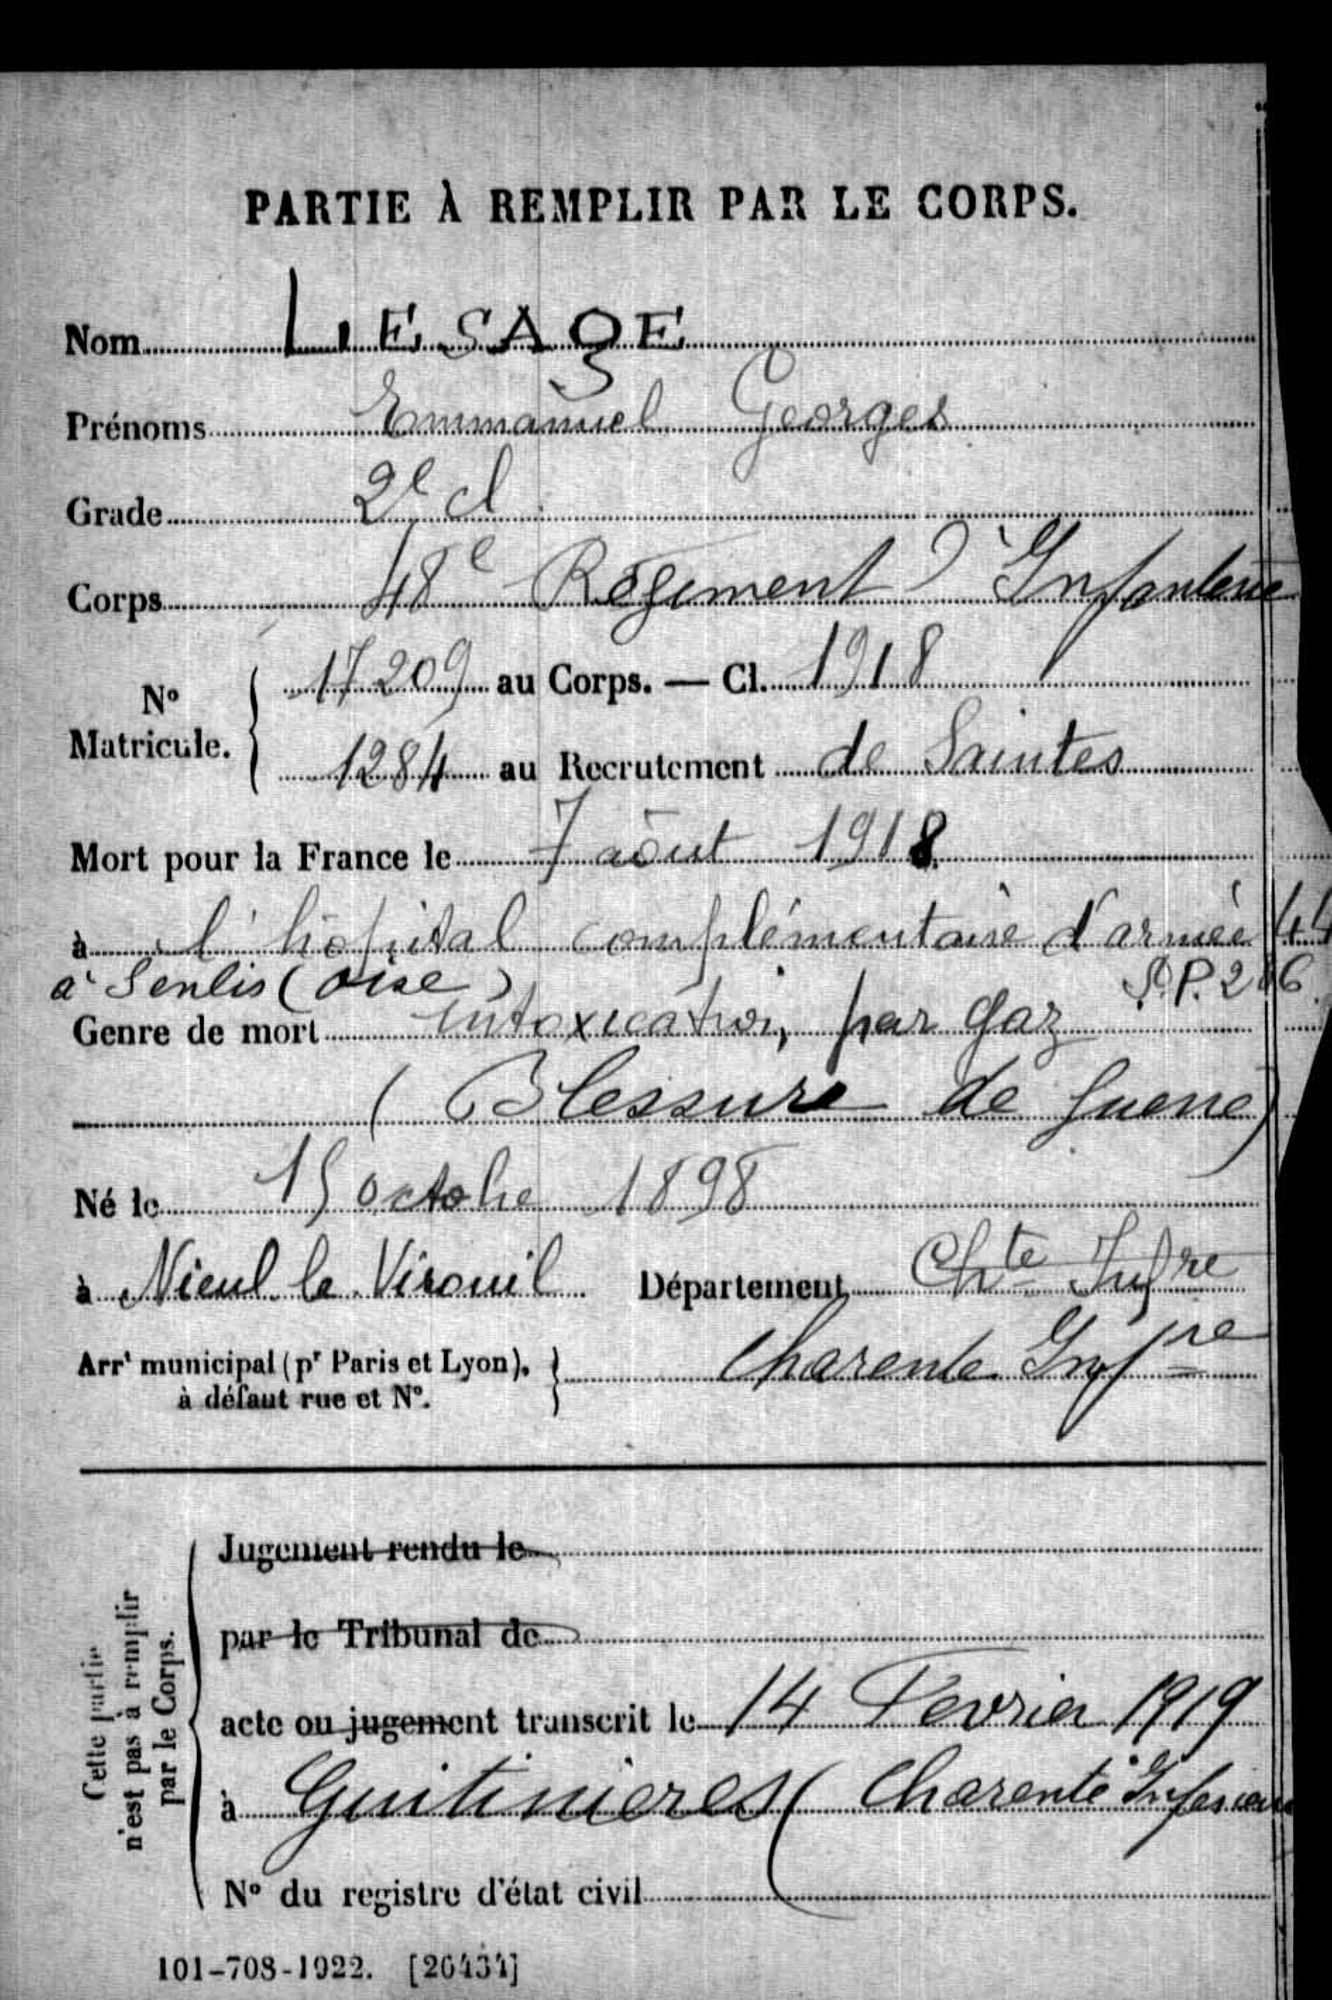 PARTIE À REMPLIR PAR LE CORPS.
Nom LESAGE
Prénoms Emmanuel Georges
Grade 2e cl
Corps 48e Régiment d'Infanterie
No Matricule. 17209 au Corps. — Cl. 1918
1284 au Recrutement de Saintes
Mort pour la France le 7 août 1918
à l'hôpital complémentaire d'armée 44
à Senlis (Oise) S.P. 216
Genre de mort intoxication par gaz
(Blessure de guerre)
Né le 15 octobre 1898
à Nieul le Virouil Département Chte Infre
Arrt municipal (pr Paris et Lyon), à défaut rue et No. Charente Infre
Cette partie n'est pas à remplir par le Corps.
Jugement rendu le
par le Tribunal de
acte ou jugement transcrit le 14 Fevrier 1919
à Guitinieres (Charente Inferieure
No du registre d'état civil
101-708-1922. [26434]